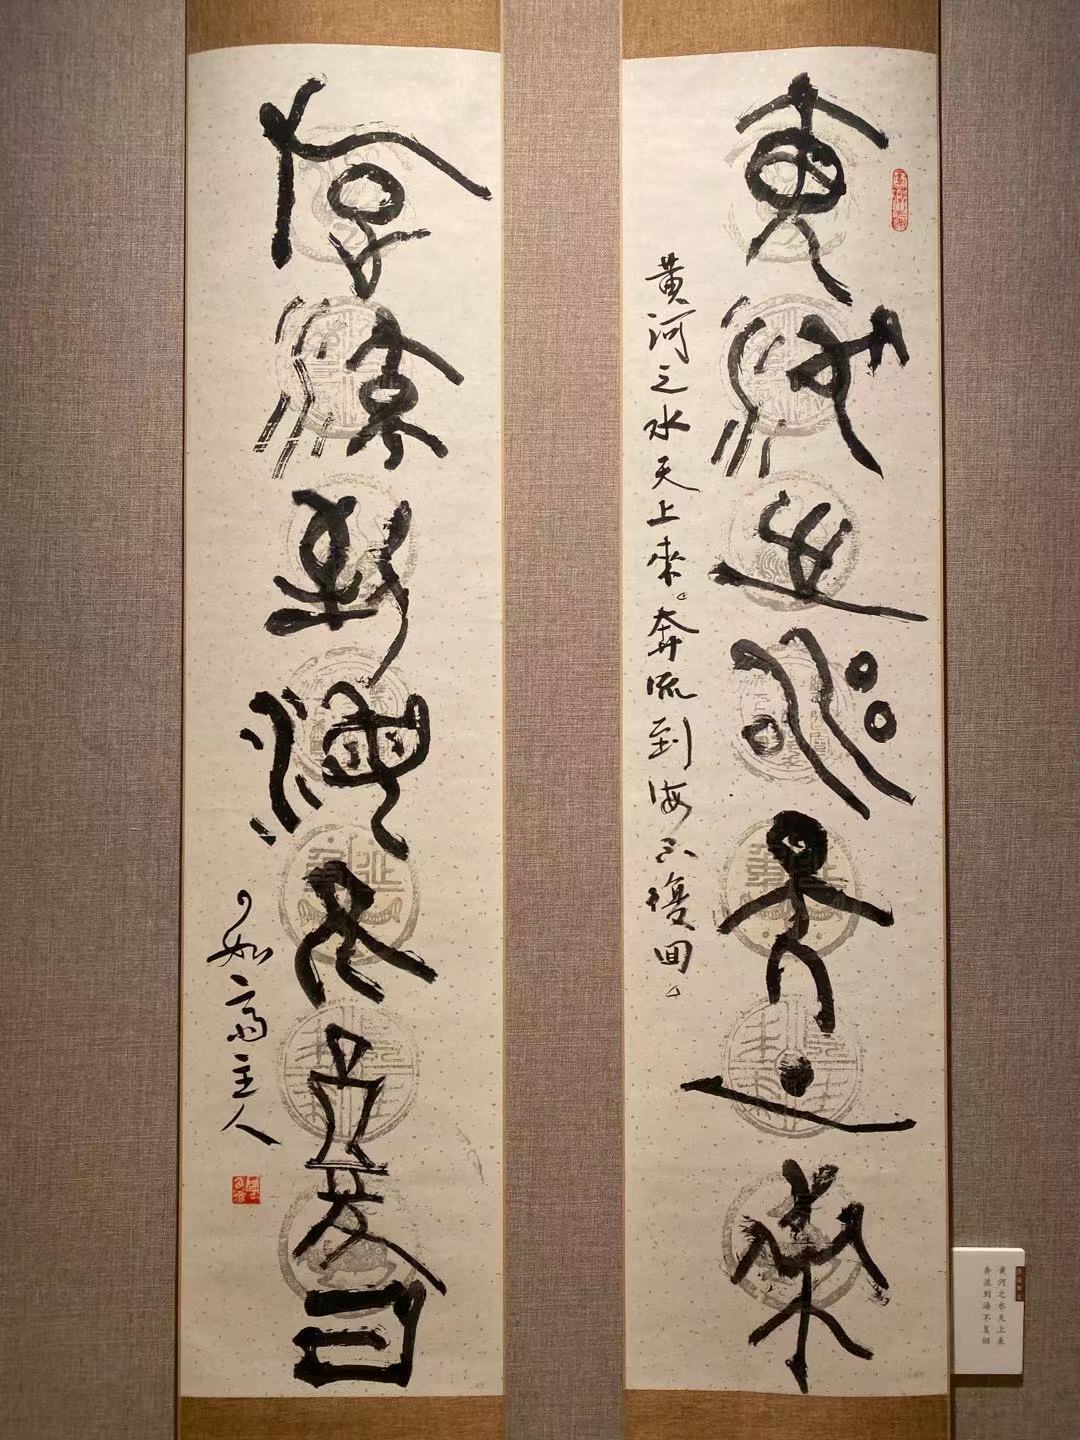 黄河之水天上来
黄河之水天上來奔流到海不復回
奔流到海不复回
如齋主人
黄河之水天上来
奔流到海不复回